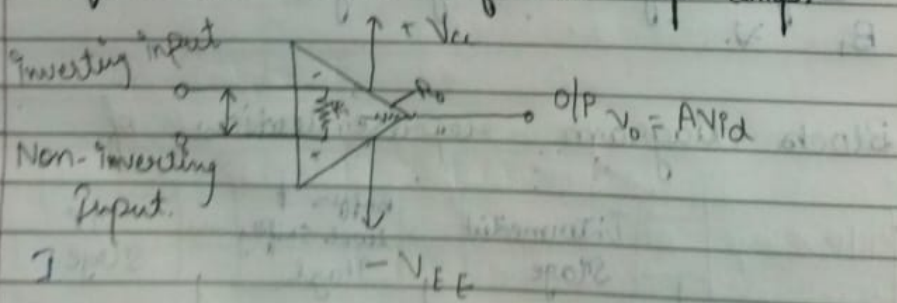 + Vcc
Inverting input
Ro
O/P Vo = AVid
Non-inverting
Input.
- VEE